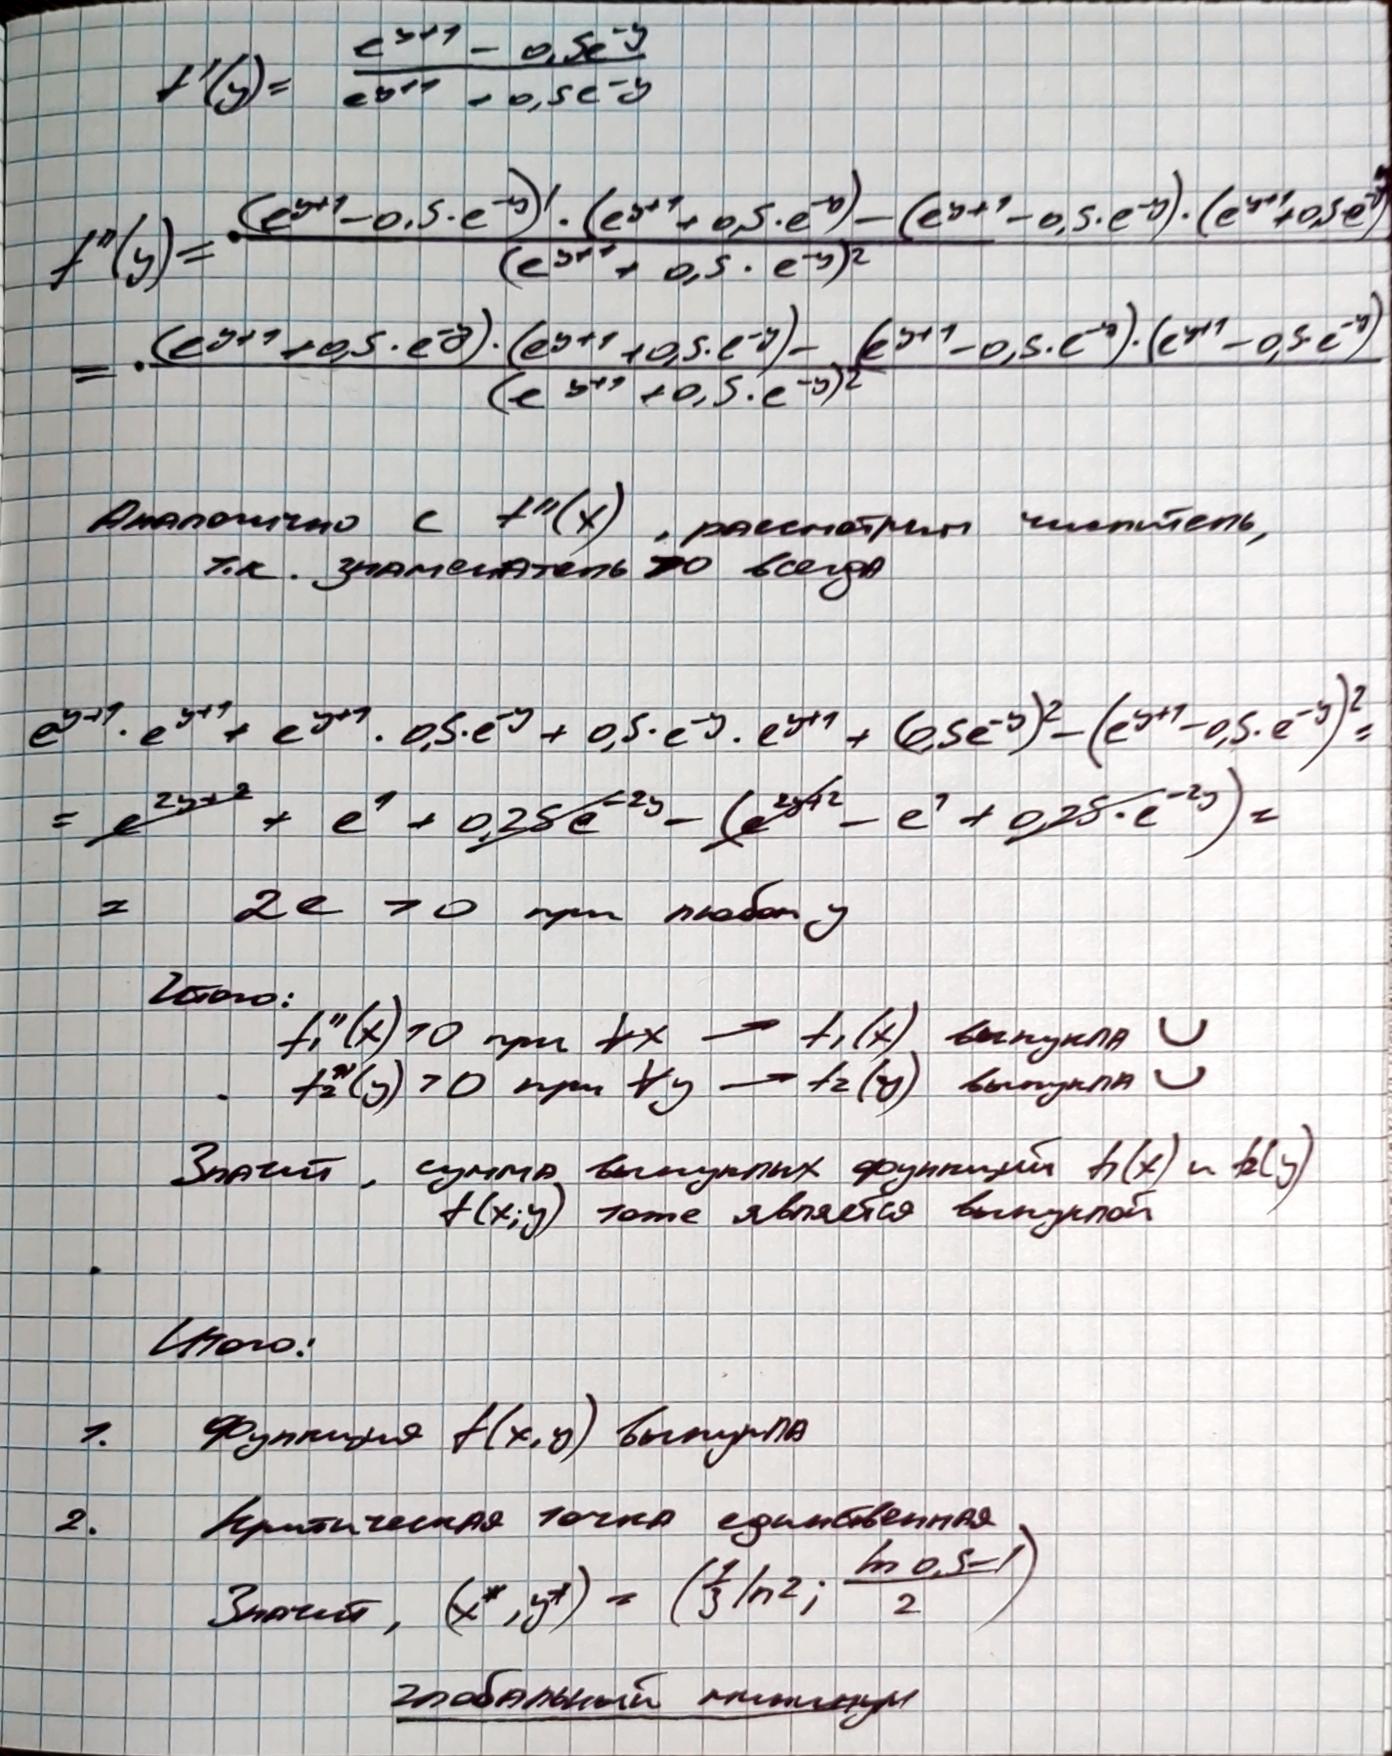 f'(y) = (e^{y+1} - 0,5e^{-y}) / (e^{y+1} + 0,5e^{-y})
f''(y) = (e^{y+1} - 0,5·e^{-y})' · (e^{y+1} + 0,5·e^{-y}) - (e^{y+1} - 0,5·e^{-y}) · (e^{y+1} + 0,5·e^{-y})' / (e^{y+1} + 0,5·e^{-y})^2
= (e^{y+1} + 0,5·e^{-y}) · (e^{y+1} + 0,5·e^{-y}) - (e^{y+1} - 0,5·e^{-y}) · (e^{y+1} - 0,5·e^{-y}) / (e^{y+1} + 0,5·e^{-y})^2
Аналогично с f''(x), рассмотрим числитель,
т.к. знаменатель >0 всегда
e^{y+1} · e^{y+1} + e^{y+1} · 0,5·e^{-y} + 0,5·e^{-y} · e^{y+1} + (0,5e^{-y})^2 - (e^{y+1} - 0,5·e^{-y})^2 =
= e^{2y+2} + e^1 + 0,25e^{-2y} - (e^{2y+2} - e^1 + 0,25·e^{-2y}) =
= 2e > 0 при любом y
Итого:
f₁''(x) > 0 при ∀x → f₁(x) выпукла ∪
f₂''(y) > 0 при ∀y → f₂(y) выпукла ∪
Значит, сумма выпуклых функций f₁(x) и f₂(y)
f(x;y) тоже является выпуклой
Итого:
1. Функция f(x,y) выпукла
2. Критическая точка единственная
Значит, (x*, y*) = (1/3 ln2; (ln 0,5 - 1)/2)
глобальный минимум